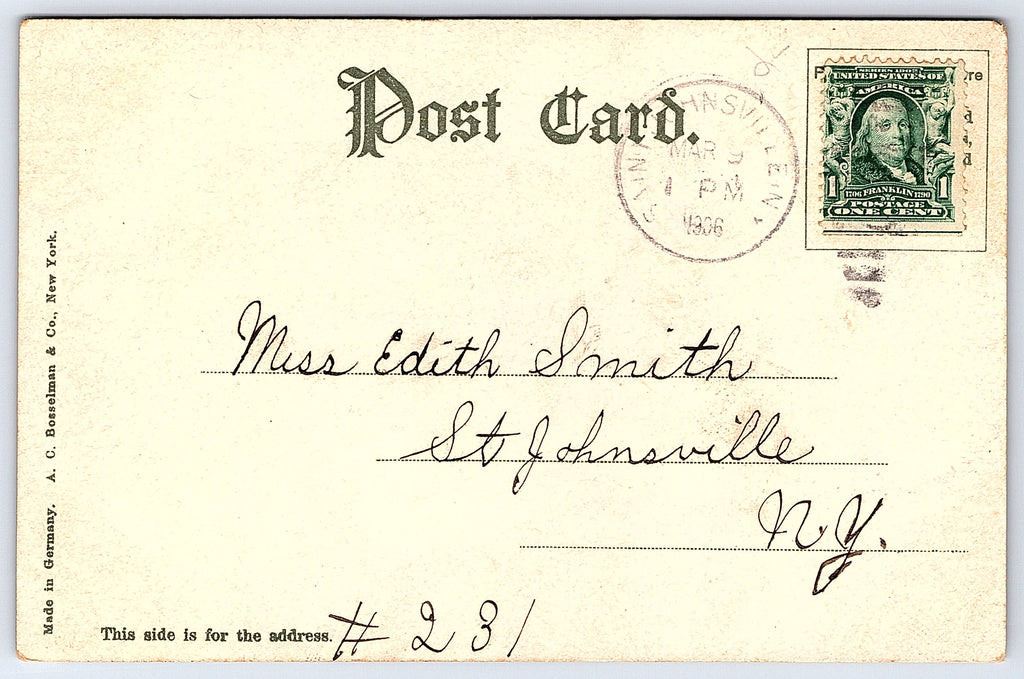 Post Card.
SAINT JOHNSVILLE N
MAR 9
1 PM
1906
P re
SERIES 1902
UNITED STATES OF
AMERICA
1 1706 FRANKLIN 1790 1
POSTAGE
ONE CENT
d
d,
d
Miss Edith Smith
St Johnsville
N.Y.
This side is for the address. # 231
Made in Germany. A. C. Bosselman & Co., New York.